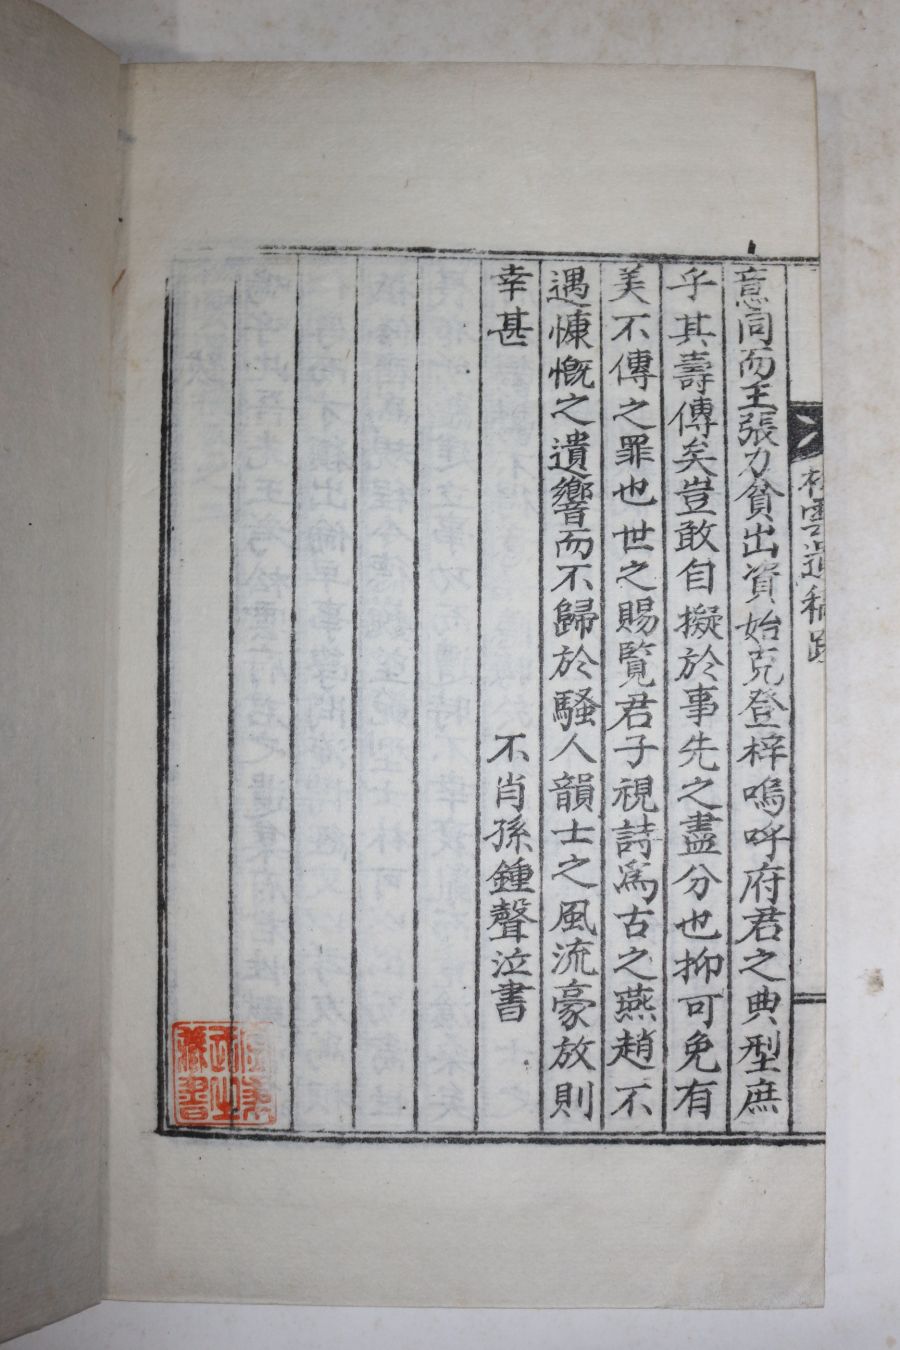 雲遺稿跋
意同而主張力貧出資始克登梓嗚呼府君之典型庶
乎其壽傳矣豈敢自擬於事先之盡分也抑可免有
美不傳之罪也世之賜覽君子視詩爲古之燕趙不
遇慷慨之遺響而不歸於騷人韻士之風流豪放則
幸甚
不肖孫鍾聲泣書